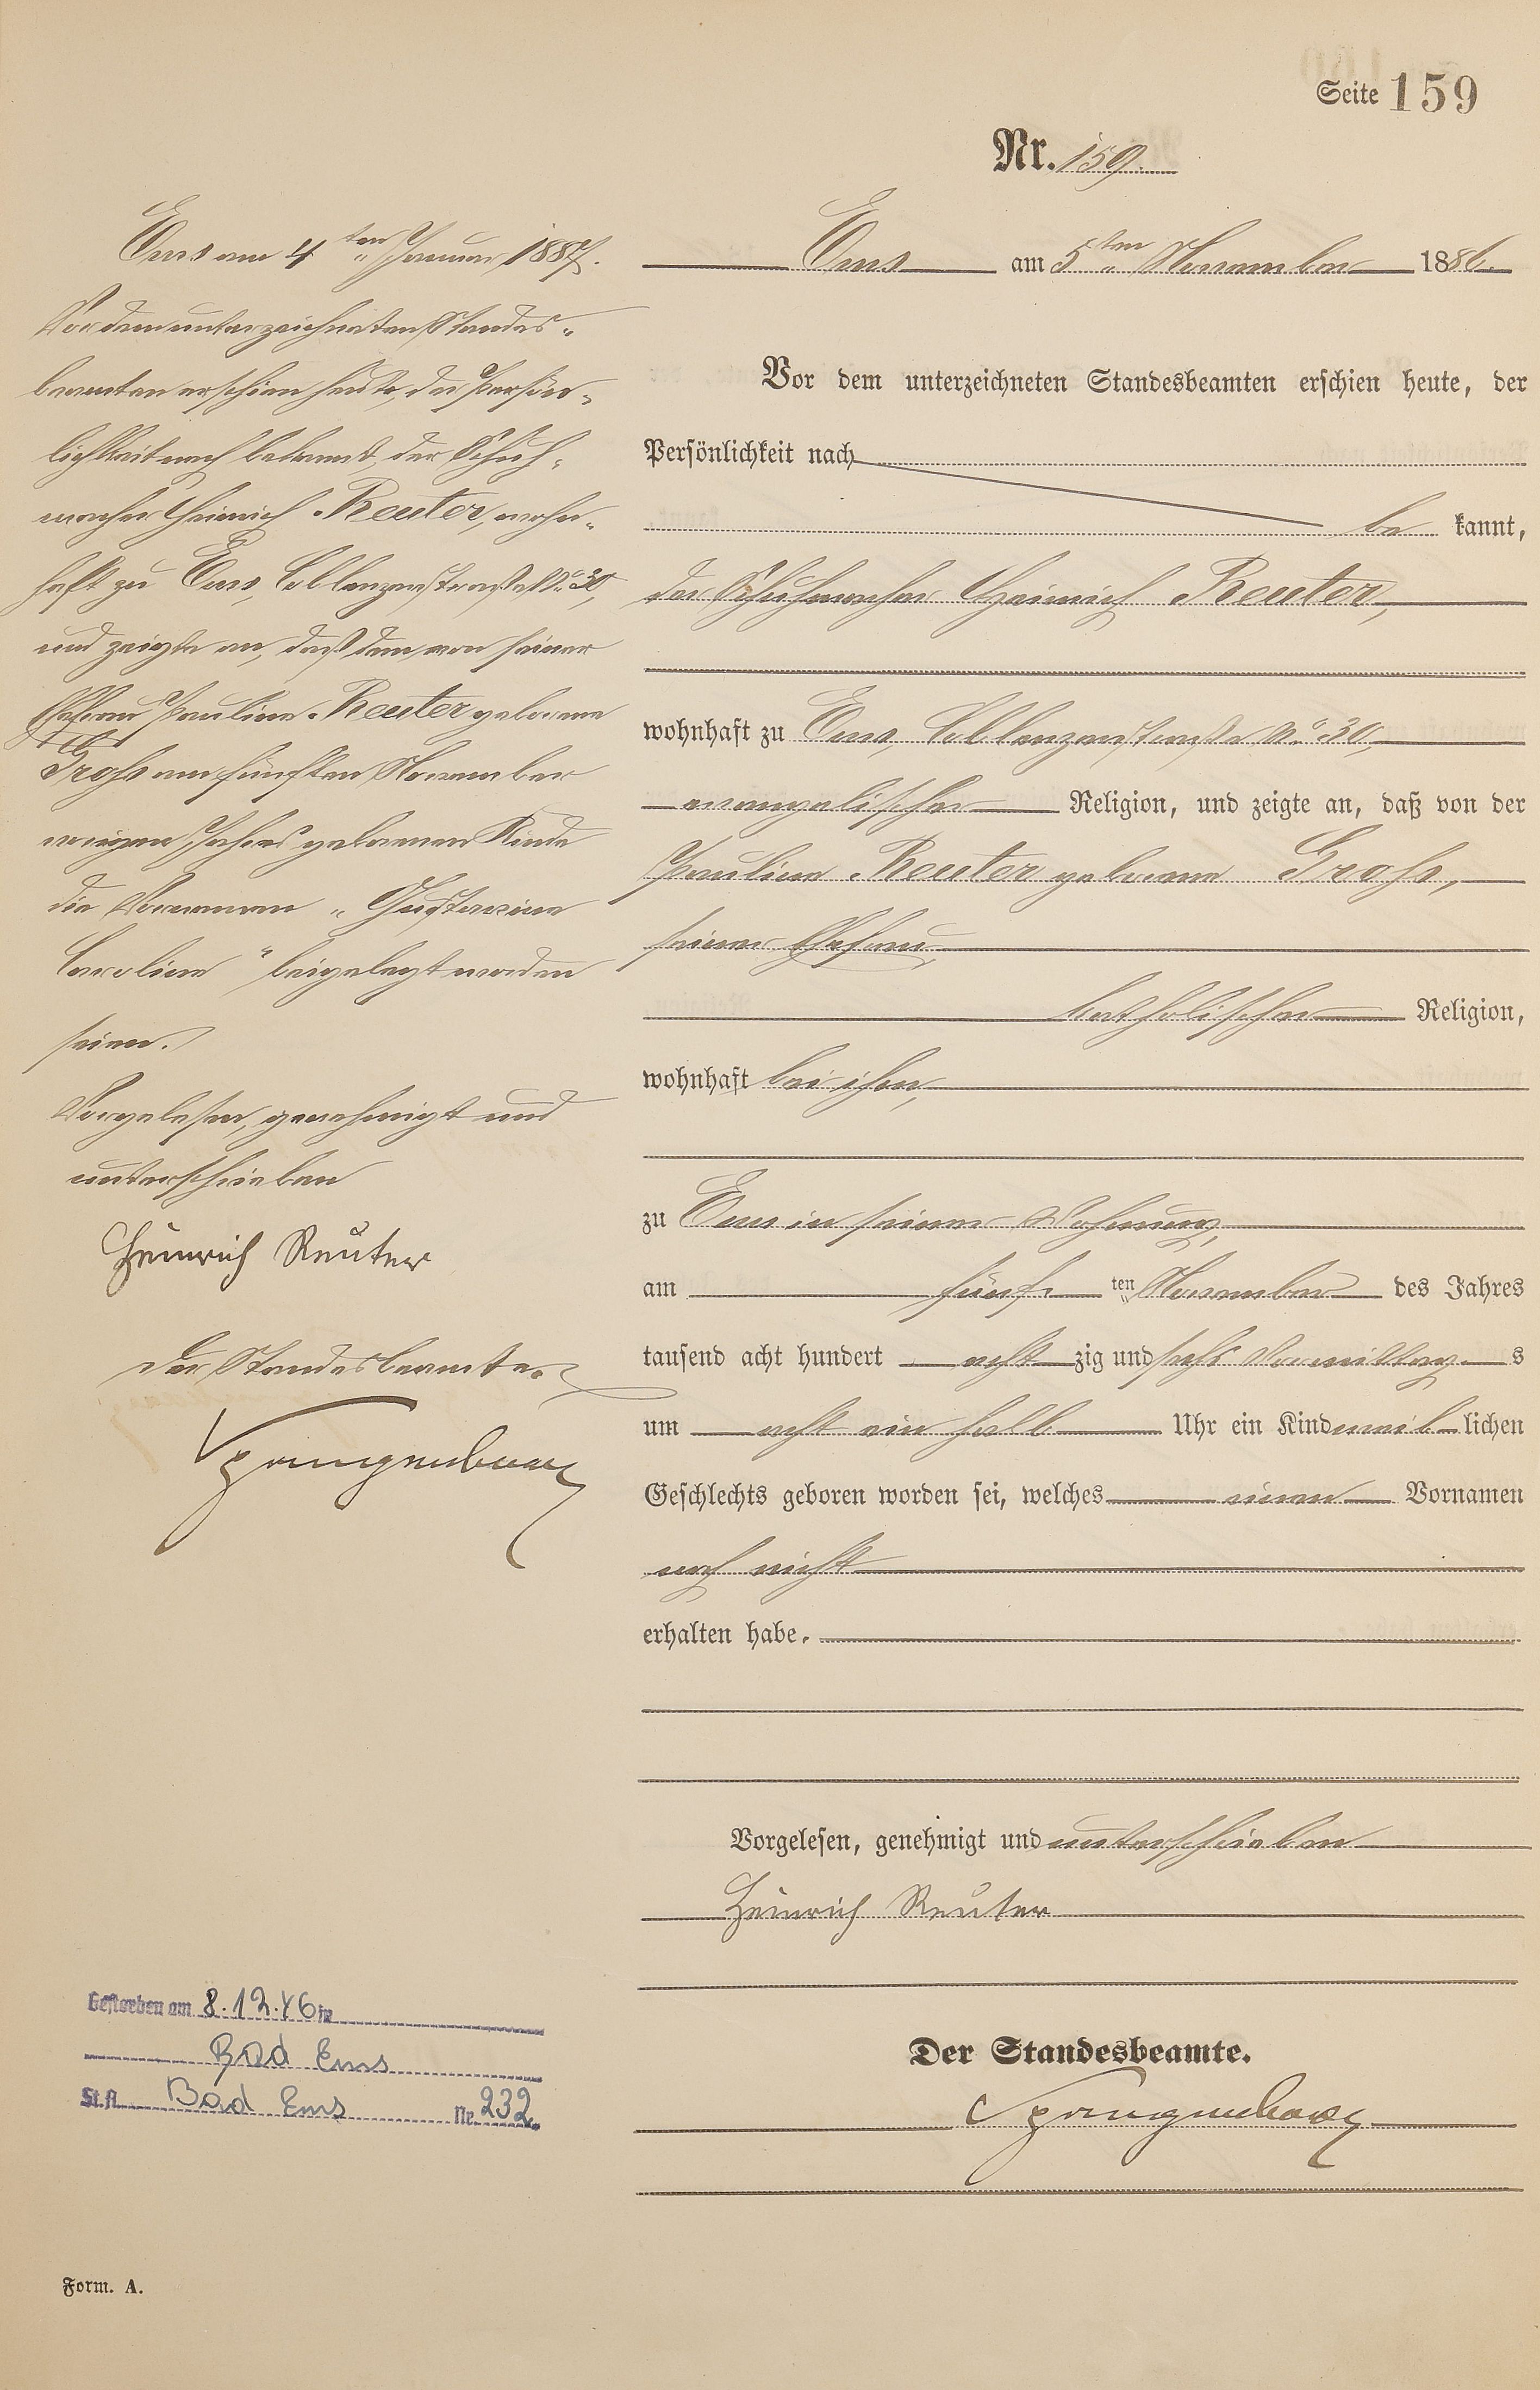 Seite 159
Nr. 159.
Ems am 5ten November 1886.
Vor dem unterzeichneten Standesbeamten erschien heute, der
Persönlichkeit nach
be kannt,
der Schuhmacher Heinrich Reuter,
wohnhaft zu Ems, Coblenzerstraße No. 30,
evangelischer Religion, und zeigte an, daß von der
Pauline Reuter geborene Groß,
seiner Ehefrau,
katholischer Religion,
wohnhaft bei ihm,
zu Ems in seiner Wohnung,
am fünf ten November des Jahres
tausend acht hundert acht zig und sechs Vormittag s
um acht ein halb Uhr ein Kind weib lichen
Geschlechts geboren worden sei, welches einen Vornamen
noch nicht
erhalten habe.
Vorgelesen, genehmigt und unterschrieben
Heinrich Reuter
Der Standesbeamte.
Spangenberg
Ems am 4ten Januar 1887.
Vor dem unterzeichneten Standes-
beamten erschien heute, der Persön-
lichkeit nach bekannt, der Schuh-
macher Heinrich Reuter, wohn-
haft zu Ems, Coblenzerstraße No. 30,
und zeigte an, daß dem von seiner
Ehefrau Pauline Reuter geborene
Groß am fünften November
vorigen Jahres geborenen Kinde
die Vornamen „Gustavine
Caroline" beigelegt worden
seien.
Vorgelesen, genehmigt und
unterschrieben
Heinrich Reuter
Der Standesbeamte.
Spangenberg
Gestorben am 8.12.46 in
Bad Ems
St.A. Bad Ems Nr. 232.
Form. A.